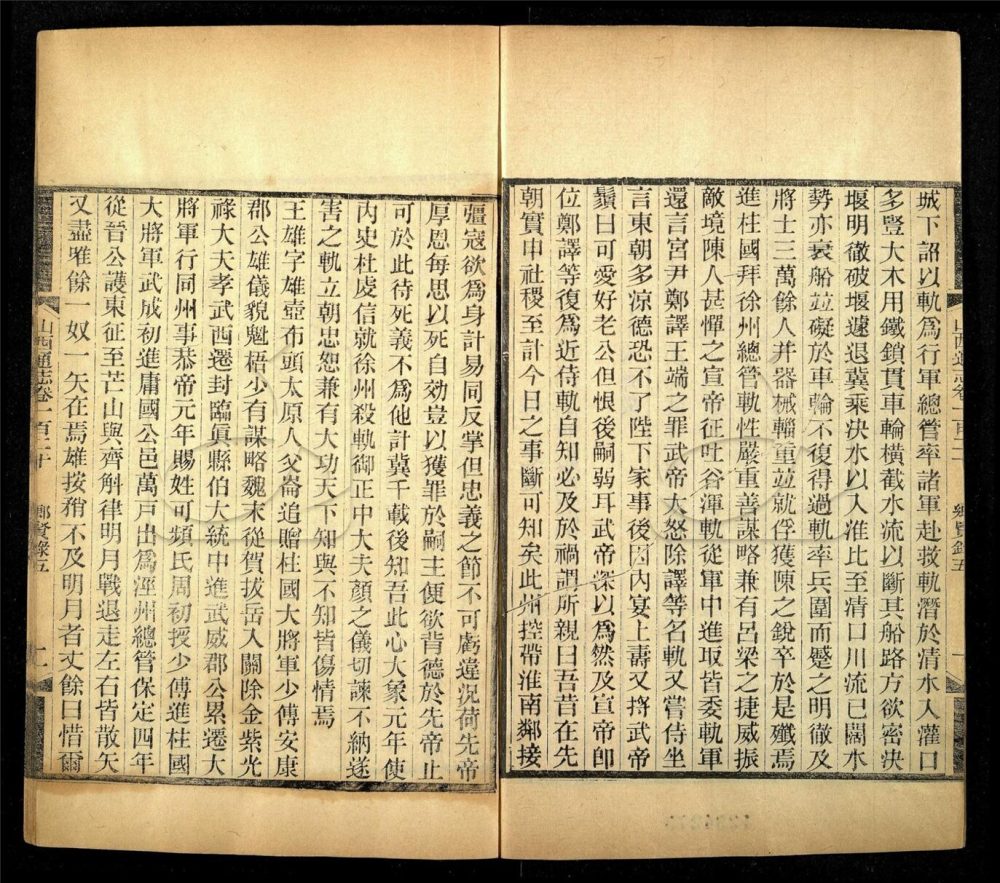 城下詔以軌爲行軍總管率諸軍赴救軌潛於清水入灌口
多豎大木用鐵鎖貫車輪橫截水流以斷其船路方欲密決
堰明徹破堰遽退冀乘決水以入淮比至清口川流已闊水
勢亦衰船竝礙於車輪不復得過軌率兵圍而蹙之明徹及
將士三萬餘人并器械輜重竝就俘獲陳之銳卒於是殲焉
進柱國拜徐州總管軌性嚴重善謀略兼有呂梁之捷威振
敵境陳人甚憚之宣帝征吐谷渾軌從軍中進取皆委軌軍
還言宮尹鄭譯王端之罪武帝大怒除譯等名軌又嘗侍坐
言東朝多涼德恐不了陛下家事後因內宴上壽又捋武帝
鬚曰可愛好老公但恨後嗣弱耳武帝深以爲然及宣帝卽
位鄭譯等復爲近侍軌自知必及於禍謂所親曰吾昔在先
朝實申社稷至計今日之事斷可知矣此州控帶淮南鄰接
疆寇欲爲身計易同反掌但忠義之節不可虧違況荷先帝
厚恩每思以死自効豈以獲罪於嗣主便欲背德於先帝止
可於此待死義不爲他計冀千載後知吾此心大象元年使
內史杜虔信就徐州殺軌御正中大夫顏之儀切諫不納遂
害之軌立朝忠恕兼有大功天下知與不知皆傷情焉
王雄字雄壺布頭太原人父崙追贈柱國大將軍少傅安康
郡公雄儀貌魁梧少有謀略魏末從賀拔岳入關除金紫光
祿大夫孝武西遷封臨眞縣伯大統中進武威郡公累遷大
將軍行同州事恭帝元年賜姓可頻氏周初授少傅進柱國
大將軍武成初進庸國公邑萬戸出爲涇州總管保定四年
從晉公護東征至芒山與齊斛律明月戰退走左右皆散矢
又盡唯餘一奴一矢在焉雄按矟不及明月者丈餘曰惜爾
山西通志卷一百二十 鄉賢錄五